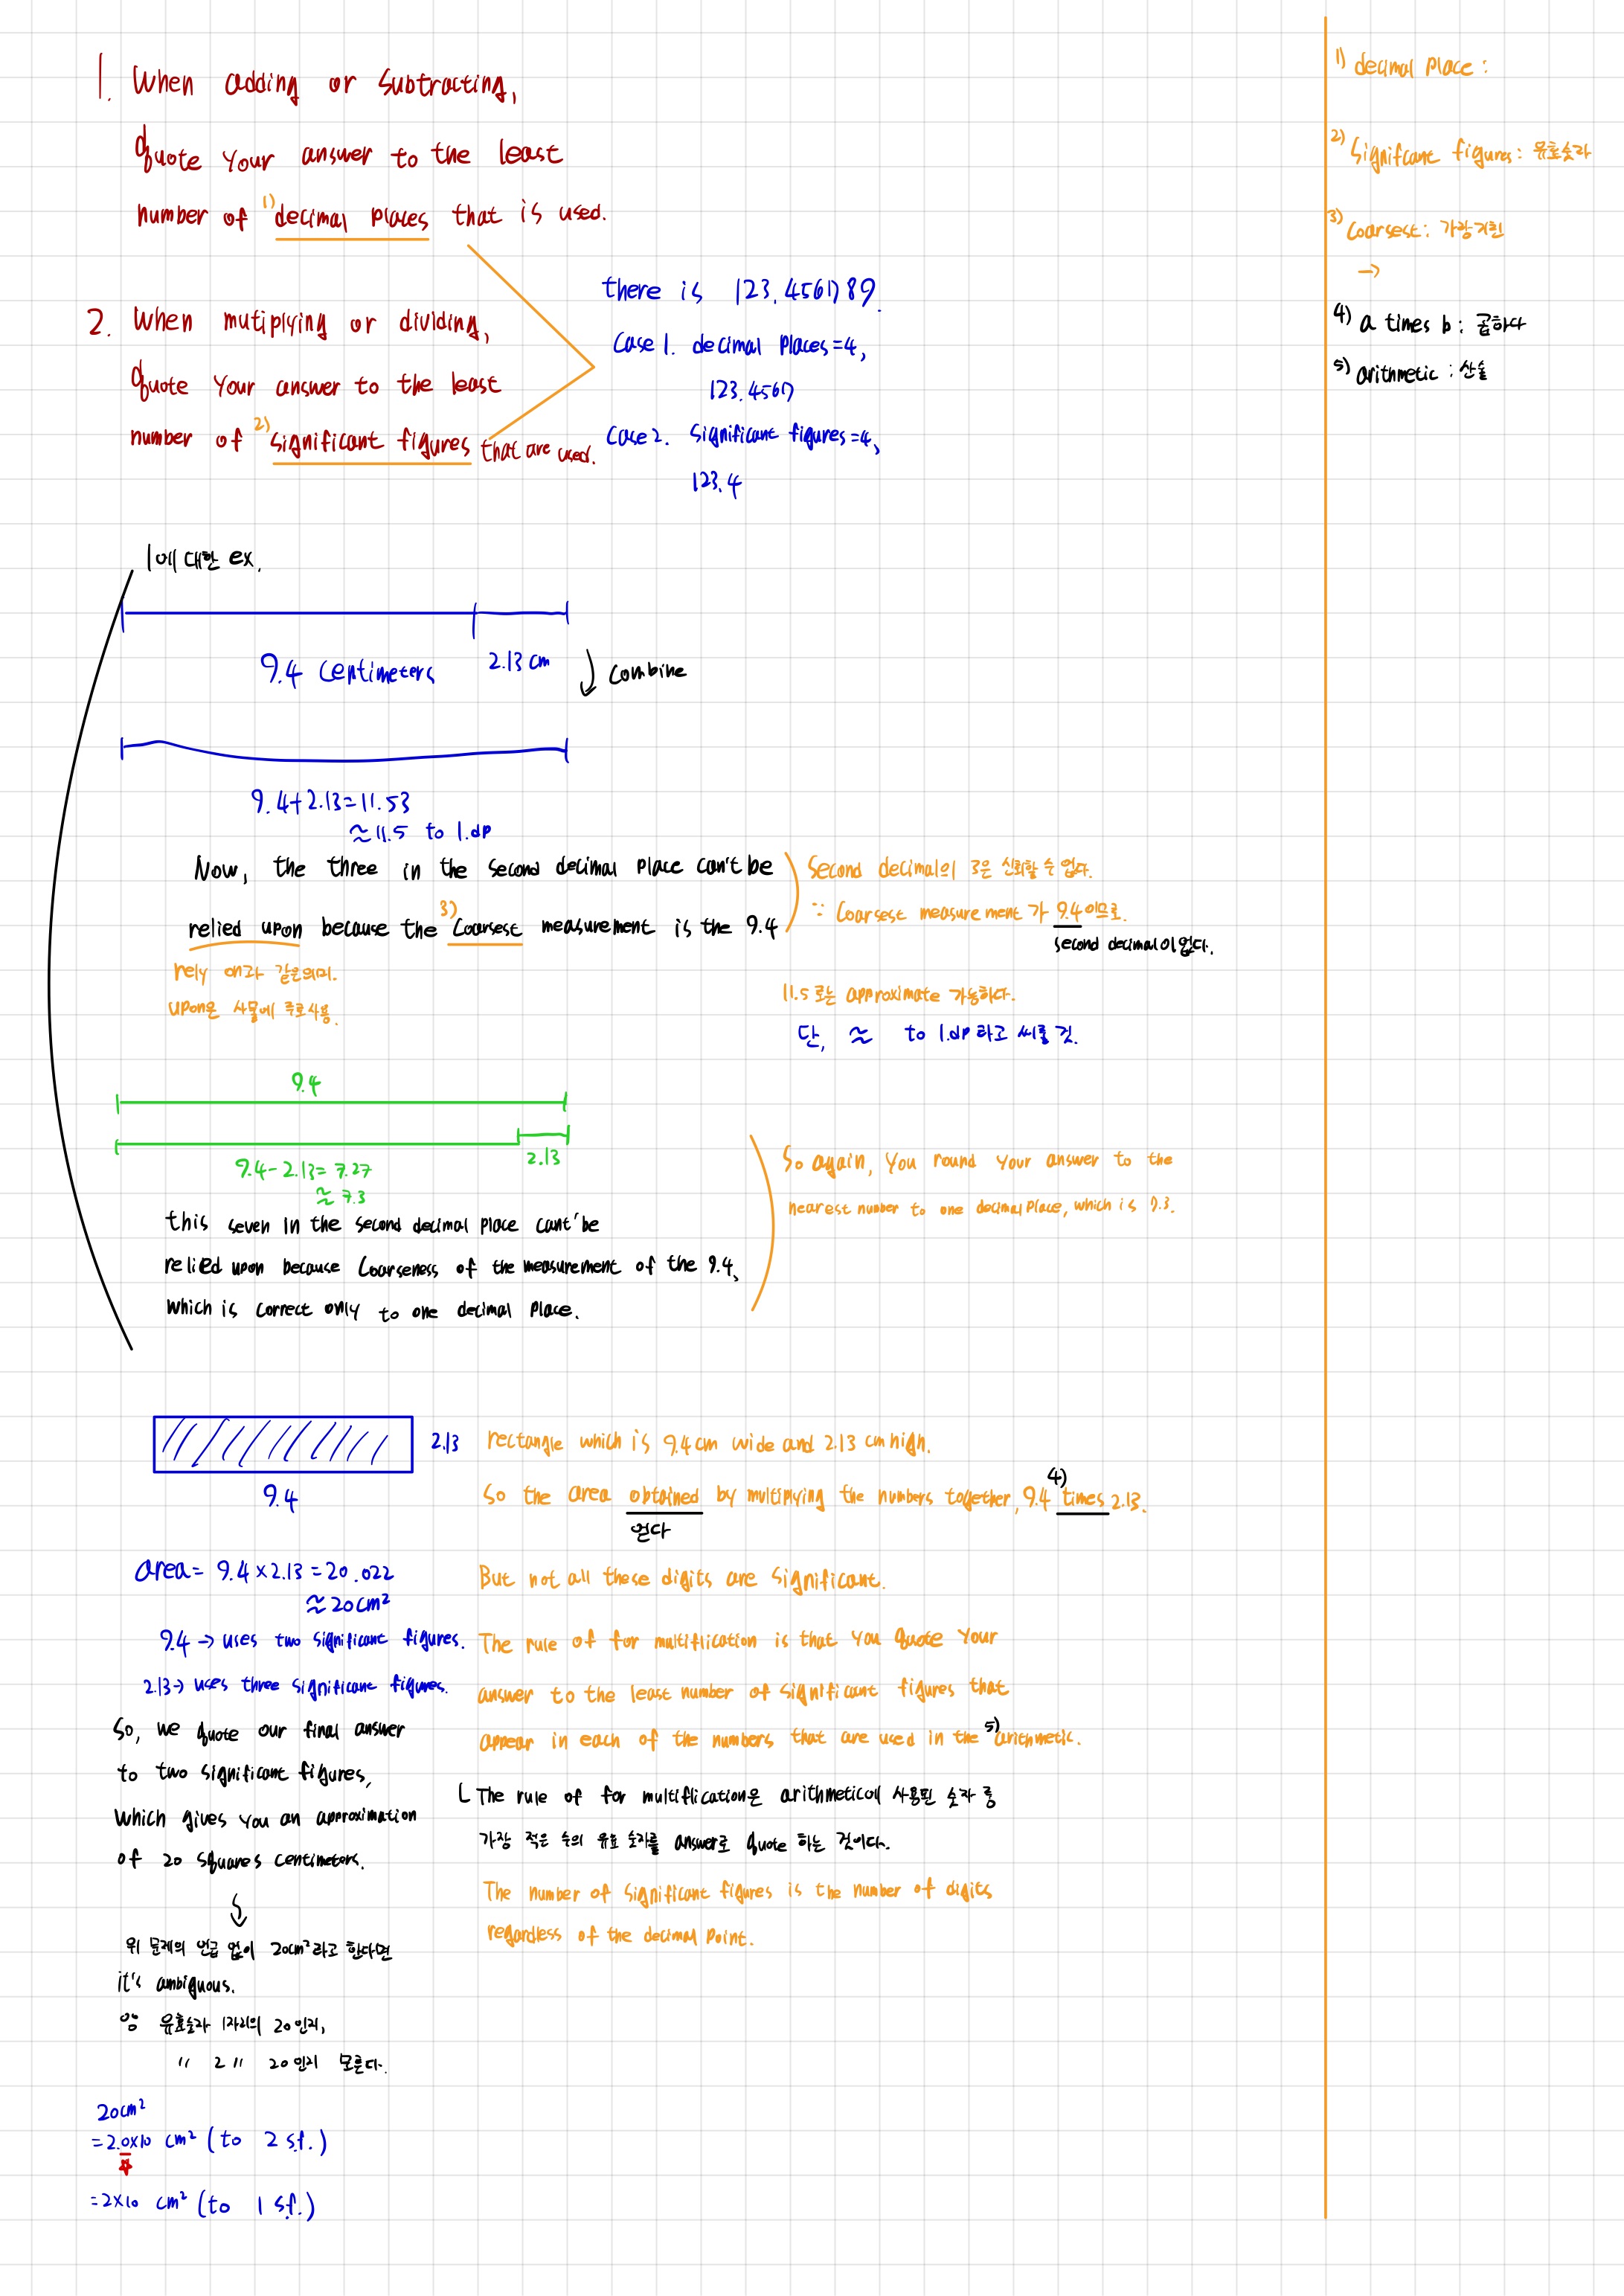 1. When adding or subtracting,
quote your answer to the least
number of 1) decimal places that is used.
2. When mutiplying or dividing,
quote your answer to the least
number of 2) significant figures that are used.
there is 123.456789.
Case 1. decimal places=4,
123.4567
Case 2. significant figures=4,
123.4
1에 대한 ex.
9.4 centimeters 2.13 cm
combine
9.4+2.13=11.53
≈11.5 to 1.dp
Now, the three in the second decimal place can't be
relied upon because the 3) coarsest measurement is the 9.4
rely on과 같은의미.
upon은 사물에 주로사용.
Second decimal의 3은 신뢰할 수 없다.
∵ Coarsest measurement가 9.4이므로.
second decimal이 없다.
11.5 로는 approximate 가능하다.
단, ≈ to 1.dp 라고 써줄 것.
9.4
2.13
9.4-2.13=7.27
≈7.3
this seven in the second decimal place cant'be
relied upon because coarseness of the measurement of the 9.4,
which is correct only to one decimal place.
So again, you round your answer to the
nearest number to one decimal place, which is 7.3.
2.13
9.4
rectangle which is 9.4cm wide and 2.13 cm high.
So the area obtained by multiplying the numbers together, 9.4 4) times 2.13.
얻다
area= 9.4×2.13=20.022
≈20cm²
9.4→uses two significant figures.
2.13→uses three significant figures.
So, we quote our final answer
to two significant figures,
which gives you an approximation
of 20 squares centimeters.
↓
위 문제의 언급 없이 20cm²라고 한다면
it's ambiguous.
∵ 유효숫자 1자리의 20인지,
〃 2 〃 20인지 모른다.
20cm²
=2.0×10 cm² (to 2 s.f.)
☆
=2×10 cm² (to 1 s.f.)
But not all these digits are significant.
The rule of for multiflication is that you quote your
answer to the least number of significant figures that
appear in each of the numbers that are used in the 5) arithmetic.
└ The rule of for multiflication은 arithmetic에 사용된 숫자 중
가장 적은 수의 유효 숫자를 answer로 quote 하는 것이다.
The number of significant figures is the number of digits
regardless of the decimal point.
1) decimal place:
2) Signifcant figures: 유효숫자
3) Coarsest: 가장거친
→
4) a times b: 곱하다
5) arithmetic: 산술